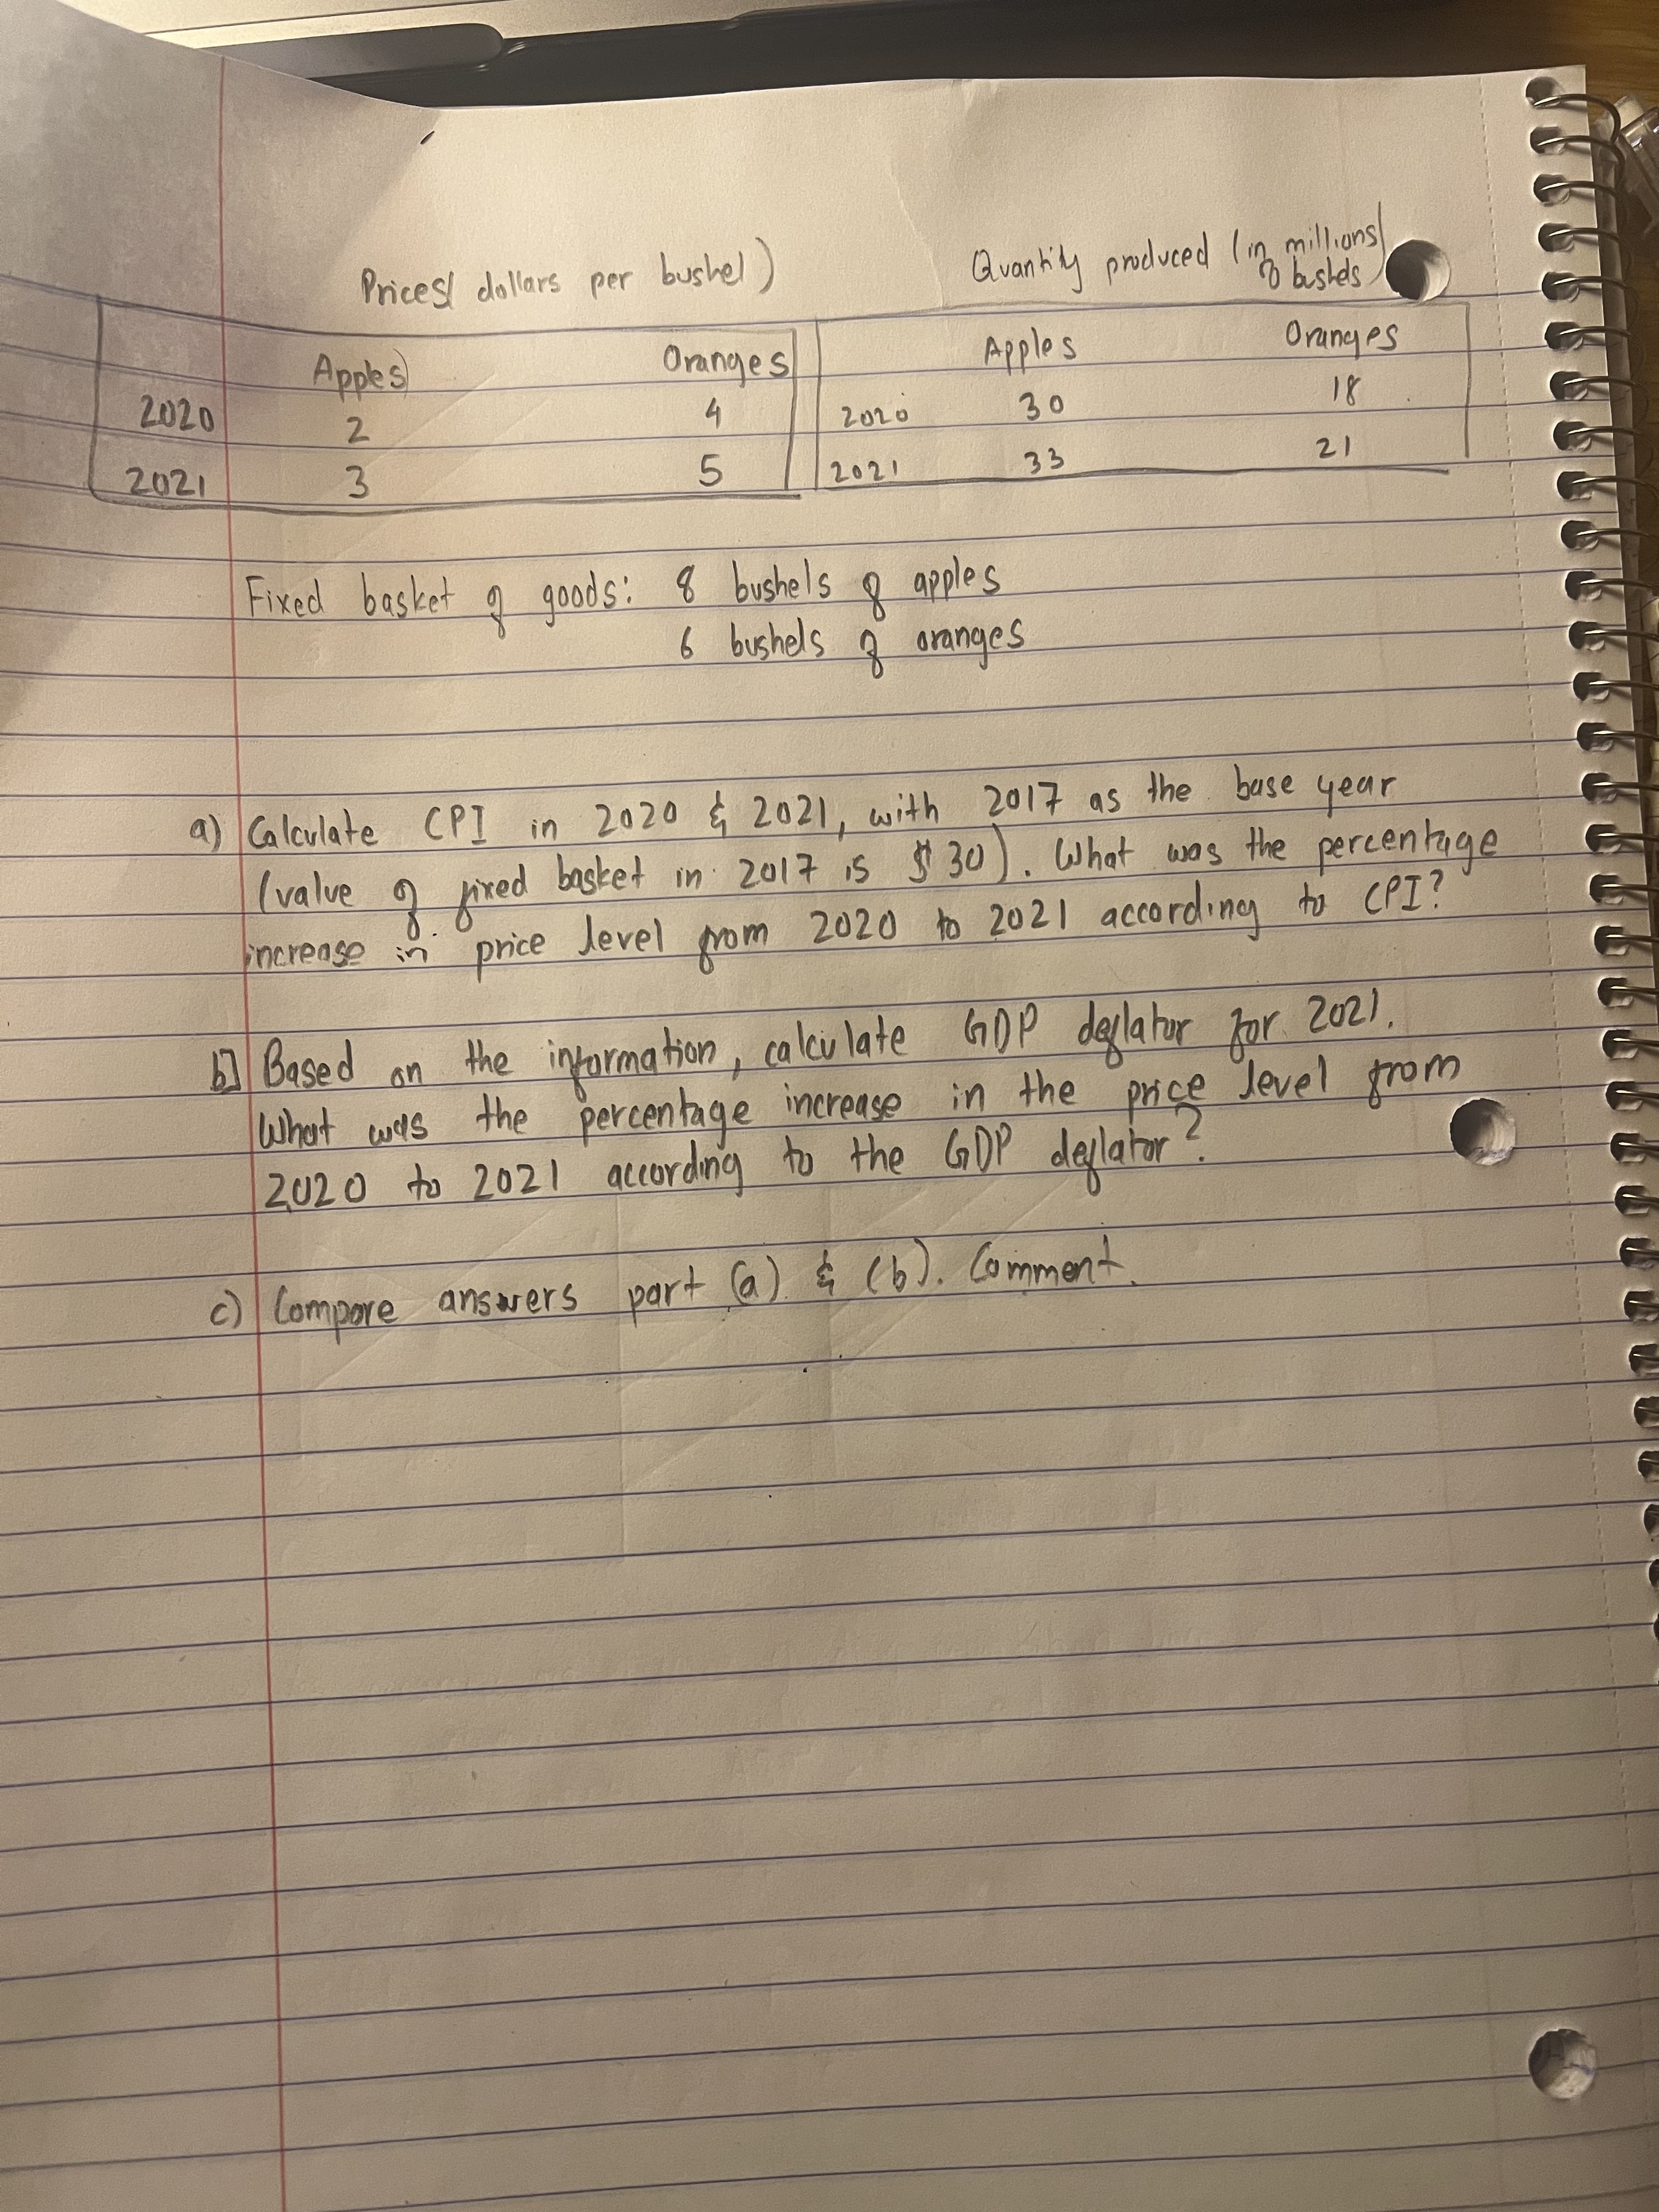 Prices( dollars per bushel)
Quantity produced (in millions
of bushels)
Apples) Oranges
2020 2 4
2021 3 5
Apples Oranges
2020 30 18
2021 33 21
Fixed basket of goods: 8 bushels of apples
6 bushels of oranges
a) Calculate CPI in 2020 & 2021, with 2017 as the base year
(value of fixed basket in 2017 is $30). What was the percentage
increase in price level from 2020 to 2021 according to CPI?
b] Based on the information, calculate GDP deflator for 2021.
What was the percentage increase in the price level from
2020 to 2021 according to the GDP deflator?
c) Compare answers part (a) & (b). Comment.